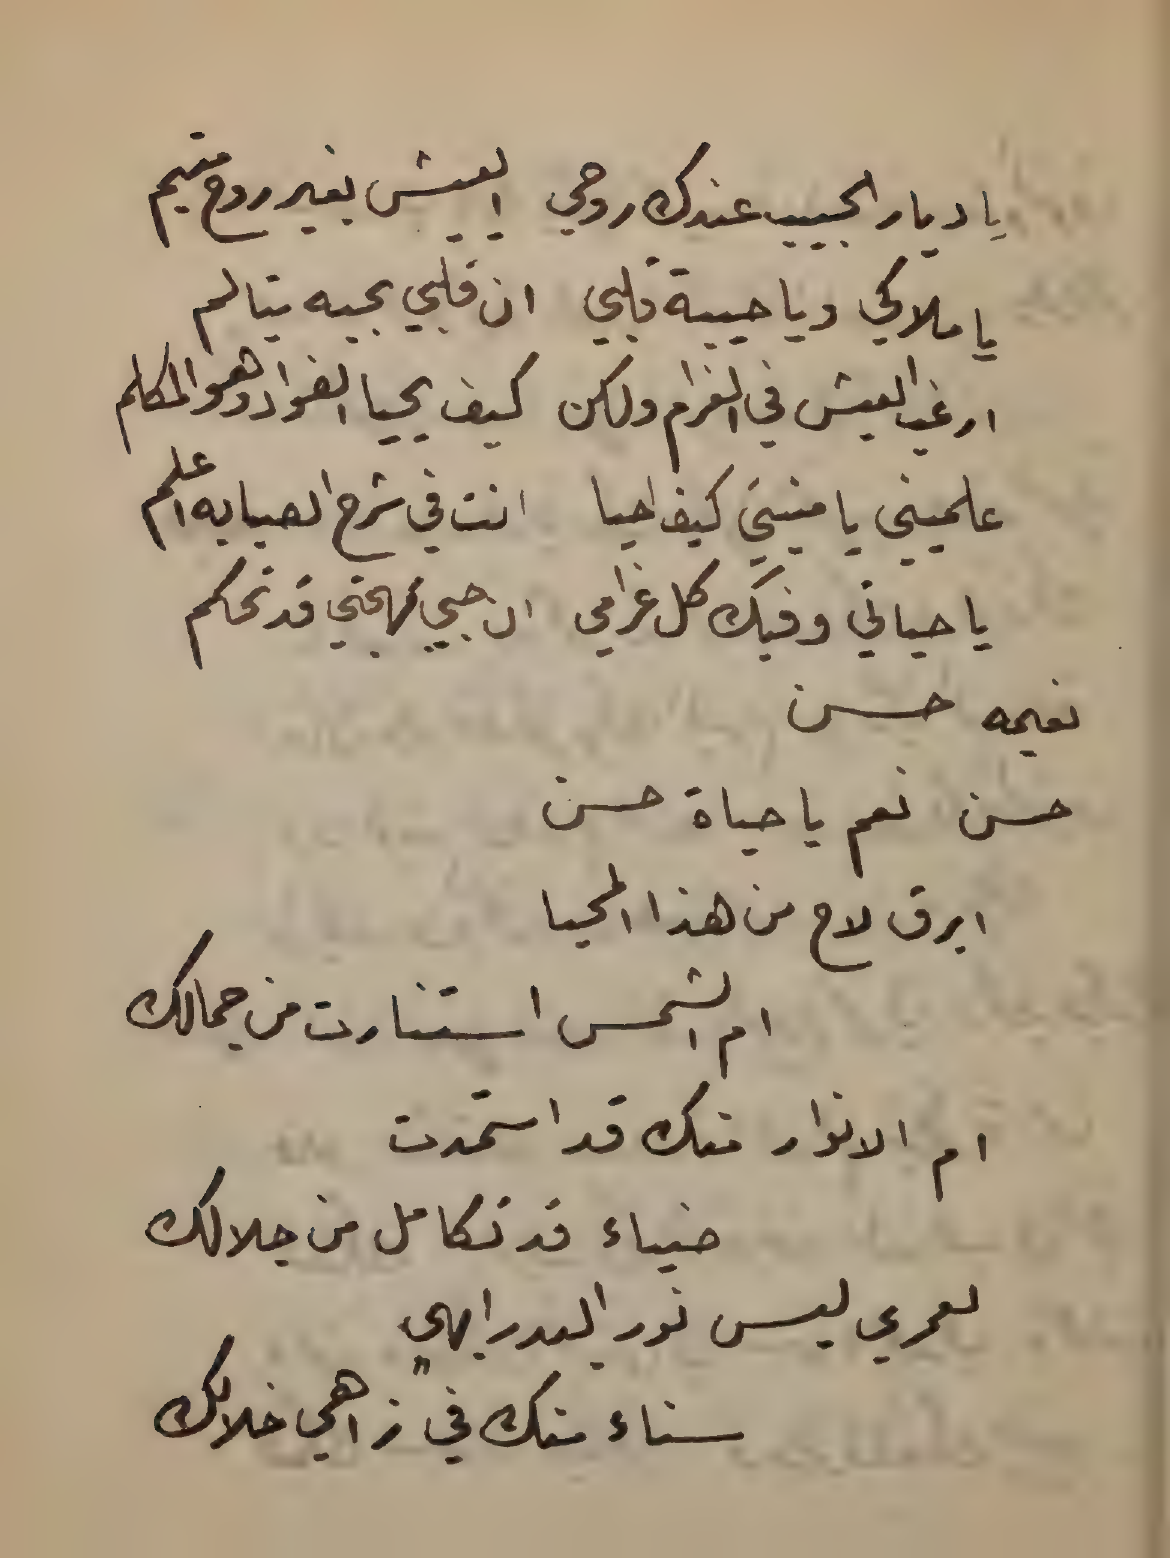 يا ديار الحبيب عندك روحي ايعيش بغير روح متيم
يا ملاكي ويا حبيبة قلبي ان قلبي بحبه يتالم
ارغب العيش في الغرام ولكن كيف يحيا الفواد وهو المكلم
علميني يا منيتي كيف احيا انت في شرح الصبابه اعلم
يا حياتي وفيك كل غرامي ان حبي بمهجتي قد تحكم
نعيمه حسن
حسن نعم يا حياة حسن
ابرق لاح من هذا المحيا
ام الشمس استنارت من جمالك
ام الانوار منك قد استمدت
ضياء قد تكامل من جلالك
لعمري ليس نور البدر ابهي
سناء منك في زاهي خلالك